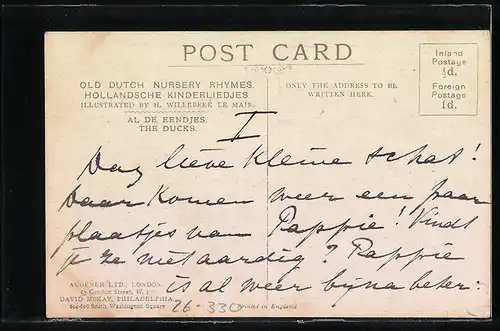 POST CARD
OLD DUTCH NURSERY RHYMES.
HOLLANDSCHE KINDERLIEDJES.
ILLUSTRATED BY H. WILLEBEEK LE MAIR.
AL DE EENDJES.
THE DUCKS.
ONLY THE ADDRESS TO BE
WRITTEN HERE.
Inland
Postage
½d.
Foreign
Postage
1d.
I
Dag lieve kleine schat!
Daar komen weer een paar
plaatjes van Pappie! Vindt
je ze niet aardig? Pappie
is al weer bijna beter.
AUGENER LTD., LONDON.
63 Conduit Street, W. 1
DAVID McKAY, PHILADELPHIA.
604-608 South Washington Square
26-330
Printed in England